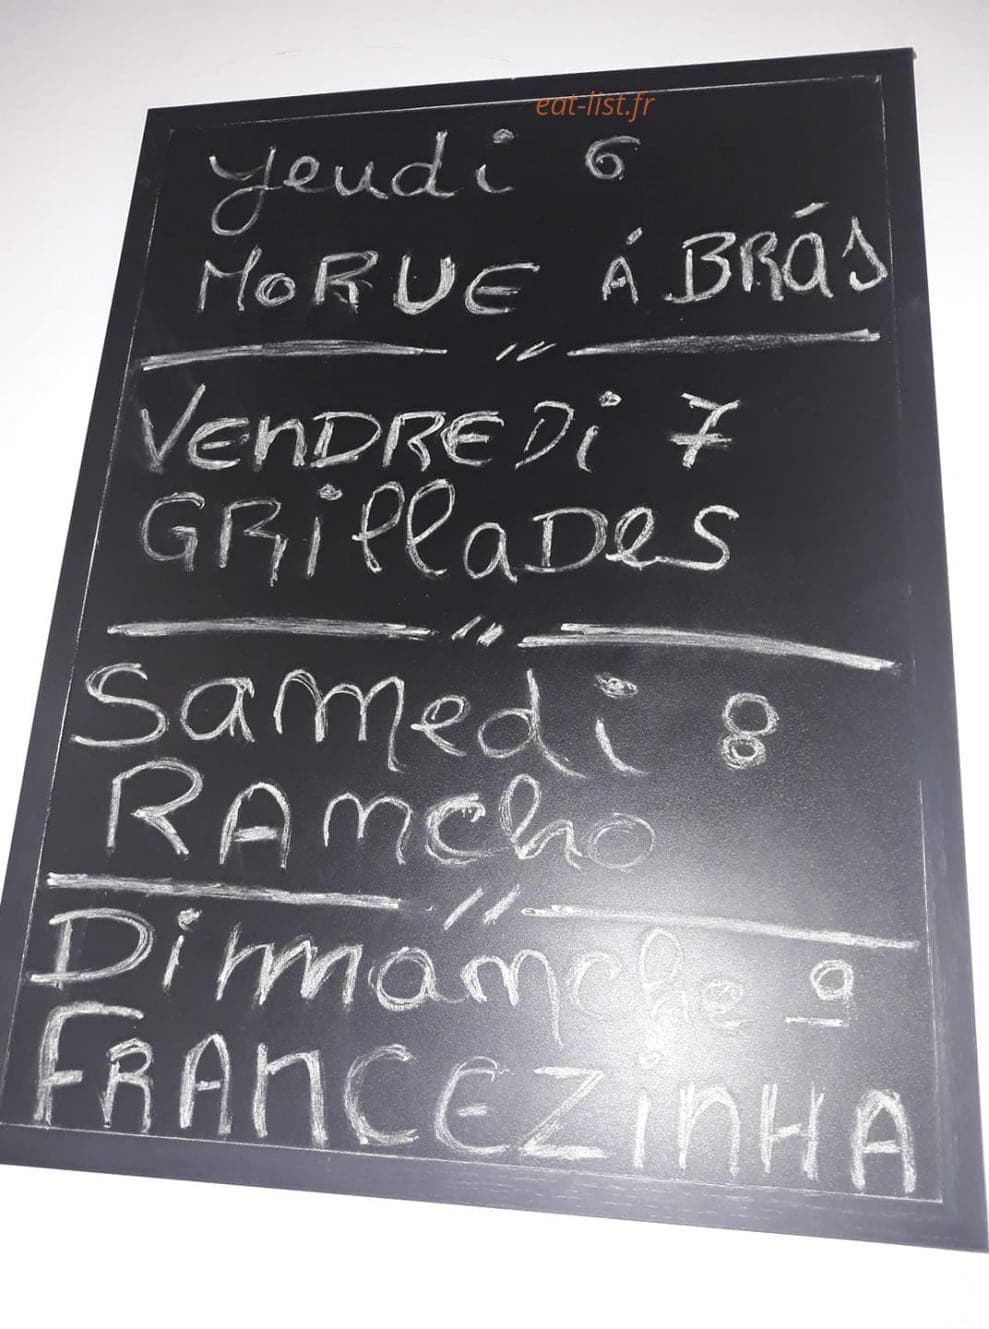 eat-list.fr
Jeudi 6
MORUE Á BRÁS
VENDREDi 7
GRillaDes
Samedi 8
RAncho
Dimanche 9
FRANCEZiNHA